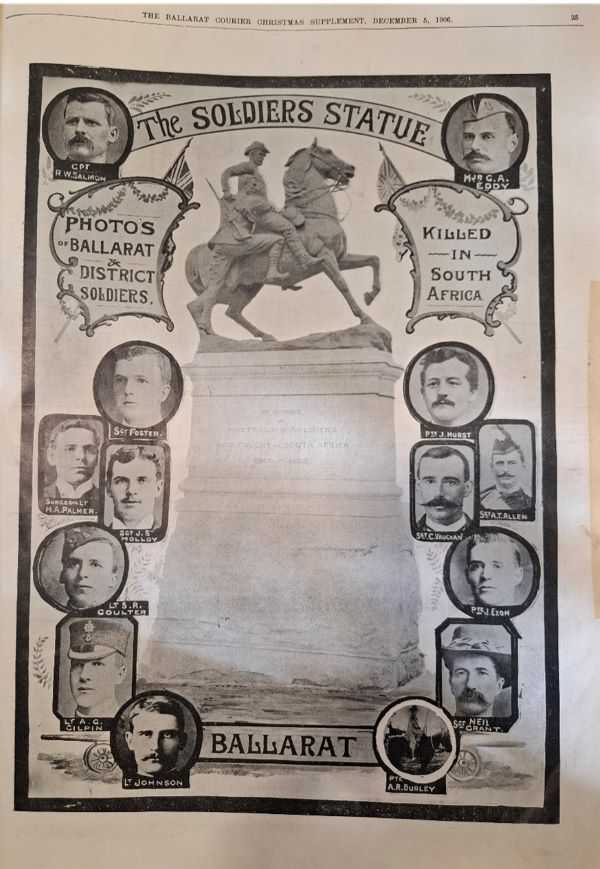 THE BALLARAT COURIER CHRISTMAS SUPPLEMENT, DECEMBER 5, 1906.
25
The SOLDIERS STATUE
CPT
R.W. SALMON
MJR G.A.
EDDY
PHOTO'S
OF BALLARAT
&
DISTRICT
SOLDIERS.
KILLED
IN
SOUTH
AFRICA
SGT FOSTER.
PTE J. HURST
AUSTRALIAN SOLDIERS
SOUTH AFRICA
SURGEON LT
H.A. PALMER.
SGT J.S.
MOLLOY
SGT C. VAUGHAN
SGT A.T. ALLEN
LT S.R.
COULTER
PTE J. EXON
LT A.G.
GILPIN
SGT NEIL
GRANT.
LT JOHNSON
BALLARAT
PTE
A.R. BURLEY